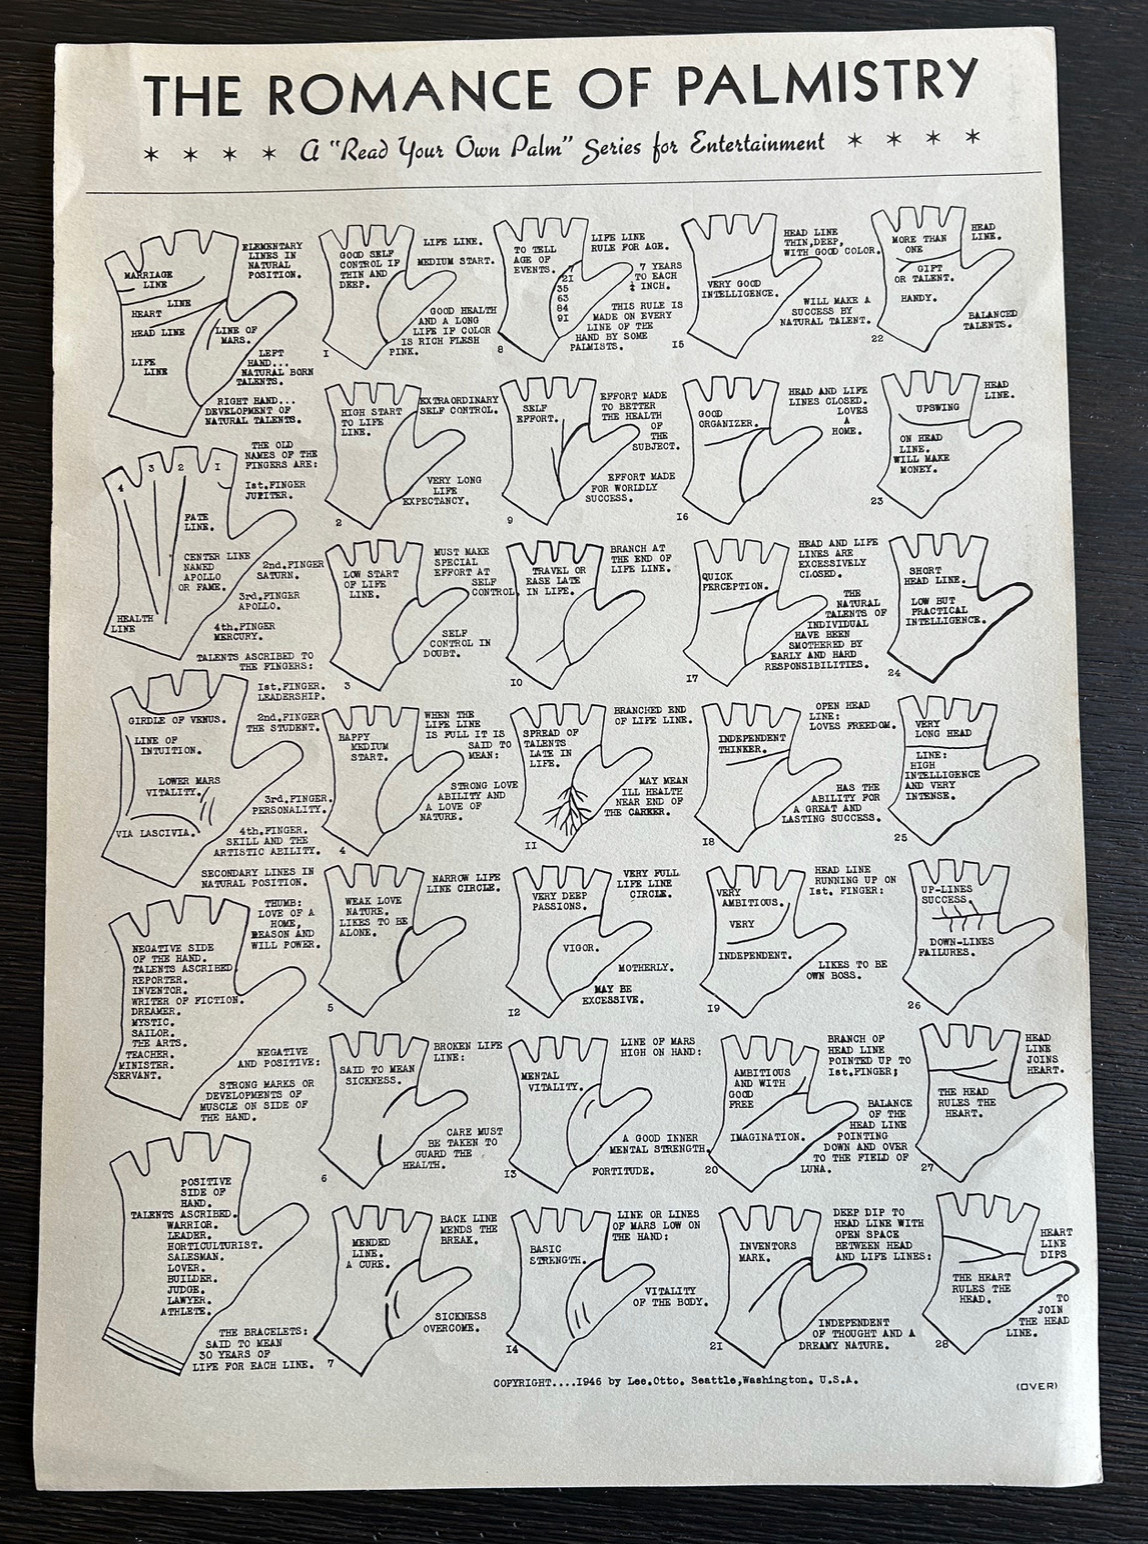 THE ROMANCE OF PALMISTRY
* * * * A "Read Your Own Palm" Series for Entertainment * * * *
MARRIAGE
LINE
LINE
HEART
HEAD LINE
LINE OF
MARS.
LIFE
LINE
ELEMENTARY
LINES IN
NATURAL
POSITION.
LEFT
HAND...
NATURAL BORN
TALENTS.
RIGHT HAND...
DEVELOPMENT OF
NATURAL TALENTS.
4 3 2 1
FATE
LINE.
CENTER LINE
NAMED
APOLLO
OR FAME.
HEALTH
LINE
THE OLD
NAMES OF THE
FINGERS ARE:
1st.FINGER
JUPITER.
2nd.FINGER
SATURN.
3rd.FINGER
APOLLO.
4th.FINGER
MERCURY.
TALENTS ASCRIBED TO
THE FINGERS:
GIRDLE OF VENUS.
LINE OF
INTUITION.
LOWER MARS
VITALITY.
VIA LASCIVIA.
1st.FINGER.
LEADERSHIP.
2nd.FINGER
THE STUDENT.
3rd.FINGER.
PERSONALITY.
4th.FINGER.
SKILL AND THE
ARTISTIC ABILITY.
SECONDARY LINES IN
NATURAL POSITION.
THUMB:
LOVE OF A
HOME,
REASON AND
WILL POWER.
NEGATIVE SIDE
OF THE HAND.
TALENTS ASCRIBED
REPORTER.
INVENTOR.
WRITER OF FICTION.
DREAMER.
MYSTIC.
SAILOR.
THE ARTS.
TEACHER.
MINISTER.
SERVANT.
NEGATIVE
AND POSITIVE:
STRONG MARKS OR
DEVELOPMENTS OF
MUSCLE ON SIDE OF
THE HAND.
POSITIVE
SIDE OF
HAND.
TALENTS ASCRIBED.
WARRIOR.
LEADER.
HORTICULTURIST.
SALESMAN.
LOVER.
BUILDER.
JUDGE.
LAWYER.
ATHLETE.
THE BRACELETS:
SAID TO MEAN
30 YEARS OF
LIFE FOR EACH LINE.
GOOD SELF
CONTROL IF
THIN AND
DEEP.
LIFE LINE.
MEDIUM START.
GOOD HEALTH
AND A LONG
LIFE IF COLOR
IS RICH FLESH
PINK.
1
HIGH START
TO LIFE
LINE.
EXTRAORDINARY
SELF CONTROL.
VERY LONG
LIFE
EXPECTANCY.
2
LOW START
OF LIFE
LINE.
MUST MAKE
SPECIAL
EFFORT AT
SELF
CONTROL.
SELF
CONTROL IN
DOUBT.
3
HAPPY
MEDIUM
START.
WHEN THE
LIFE LINE
IS FULL IT IS
SAID TO
MEAN:
STRONG LOVE
ABILITY AND
A LOVE OF
NATURE.
4
WEAK LOVE
NATURE.
LIKES TO BE
ALONE.
NARROW LIFE
LINE CIRCLE.
5
SAID TO MEAN
SICKNESS.
BROKEN LIFE
LINE:
CARE MUST
BE TAKEN TO
GUARD THE
HEALTH.
6
MENDED
LINE.
A CURE.
BACK LINE
MENDS THE
BREAK.
SICKNESS
OVERCOME.
7
TO TELL
AGE OF
EVENTS.
7
21
35
63
84
91
LIFE LINE
RULE FOR AGE.
7 YEARS
TO EACH
¼ INCH.
THIS RULE IS
MADE ON EVERY
LINE OF THE
HAND BY SOME
PALMISTS.
8
SELF
EFFORT.
EFFORT MADE
TO BETTER
THE HEALTH
OF
THE
SUBJECT.
EFFORT MADE
FOR WORLDLY
SUCCESS.
9
TRAVEL OR
EASE LATE
IN LIFE.
BRANCH AT
THE END OF
LIFE LINE.
10
SPREAD OF
TALENTS
LATE IN
LIFE.
BRANCHED END
OF LIFE LINE.
MAY MEAN
ILL HEALTH
NEAR END OF
THE CAREER.
11
VERY DEEP
PASSIONS.
VIGOR.
VERY FULL
LIFE LINE
CIRCLE.
MOTHERLY.
MAY BE
EXCESSIVE.
12
MENTAL
VITALITY.
LINE OF MARS
HIGH ON HAND:
A GOOD INNER
MENTAL STRENGTH.
FORTITUDE.
13
BASIC
STRENGTH.
LINE OR LINES
OF MARS LOW ON
THE HAND:
VITALITY
OF THE BODY.
14
VERY GOOD
INTELLIGENCE.
HEAD LINE
THIN,DEEP,
WITH GOOD COLOR.
WILL MAKE A
SUCCESS BY
NATURAL TALENT.
15
GOOD
ORGANIZER.
HEAD AND LIFE
LINES CLOSED.
LOVES
A
HOME.
16
QUICK
PERCEPTION.
HEAD AND LIFE
LINES ARE
EXCESSIVELY
CLOSED.
THE
NATURAL
TALENTS OF
INDIVIDUAL
HAVE BEEN
SMOTHERED BY
EARLY AND HARD
RESPONSIBILITIES.
17
INDEPENDENT
THINKER.
OPEN HEAD
LINE:
LOVES FREEDOM.
HAS THE
ABILITY FOR
A GREAT AND
LASTING SUCCESS.
18
VERY
AMBITIOUS.
VERY
INDEPENDENT.
HEAD LINE
RUNNING UP ON
1st. FINGER:
LIKES TO BE
OWN BOSS.
19
AMBITIOUS
AND WITH
GOOD
FREE
IMAGINATION.
BRANCH OF
HEAD LINE
POINTED UP TO
1st.FINGER;
BALANCE
OF THE
HEAD LINE
POINTING
DOWN AND OVER
TO THE FIELD OF
LUNA.
20
INVENTORS
MARK.
DEEP DIP TO
HEAD LINE WITH
OPEN SPACE
BETWEEN HEAD
AND LIFE LINES:
INDEPENDENT
OF THOUGHT AND A
DREAMY NATURE.
21
MORE THAN
ONE
GIFT
OR TALENT.
HANDY.
HEAD
LINE.
BALANCED
TALENTS.
22
UPSWING
ON HEAD
LINE.
WILL MAKE
MONEY.
HEAD
LINE.
23
SHORT
HEAD LINE.
LOW BUT
PRACTICAL
INTELLIGENCE.
24
VERY
LONG HEAD
LINE:
HIGH
INTELLIGENCE
AND VERY
INTENSE.
25
UP-LINES
SUCCESS.
DOWN-LINES
FAILURES.
26
THE HEAD
RULES THE
HEART.
HEAD
LINE
JOINS
HEART.
27
THE HEART
RULES THE
HEAD.
HEART
LINE
DIPS
TO
JOIN
THE HEAD
LINE.
28
COPYRIGHT....1946 by Lee.Otto. Seattle,Washington. U.S.A.
(OVER)